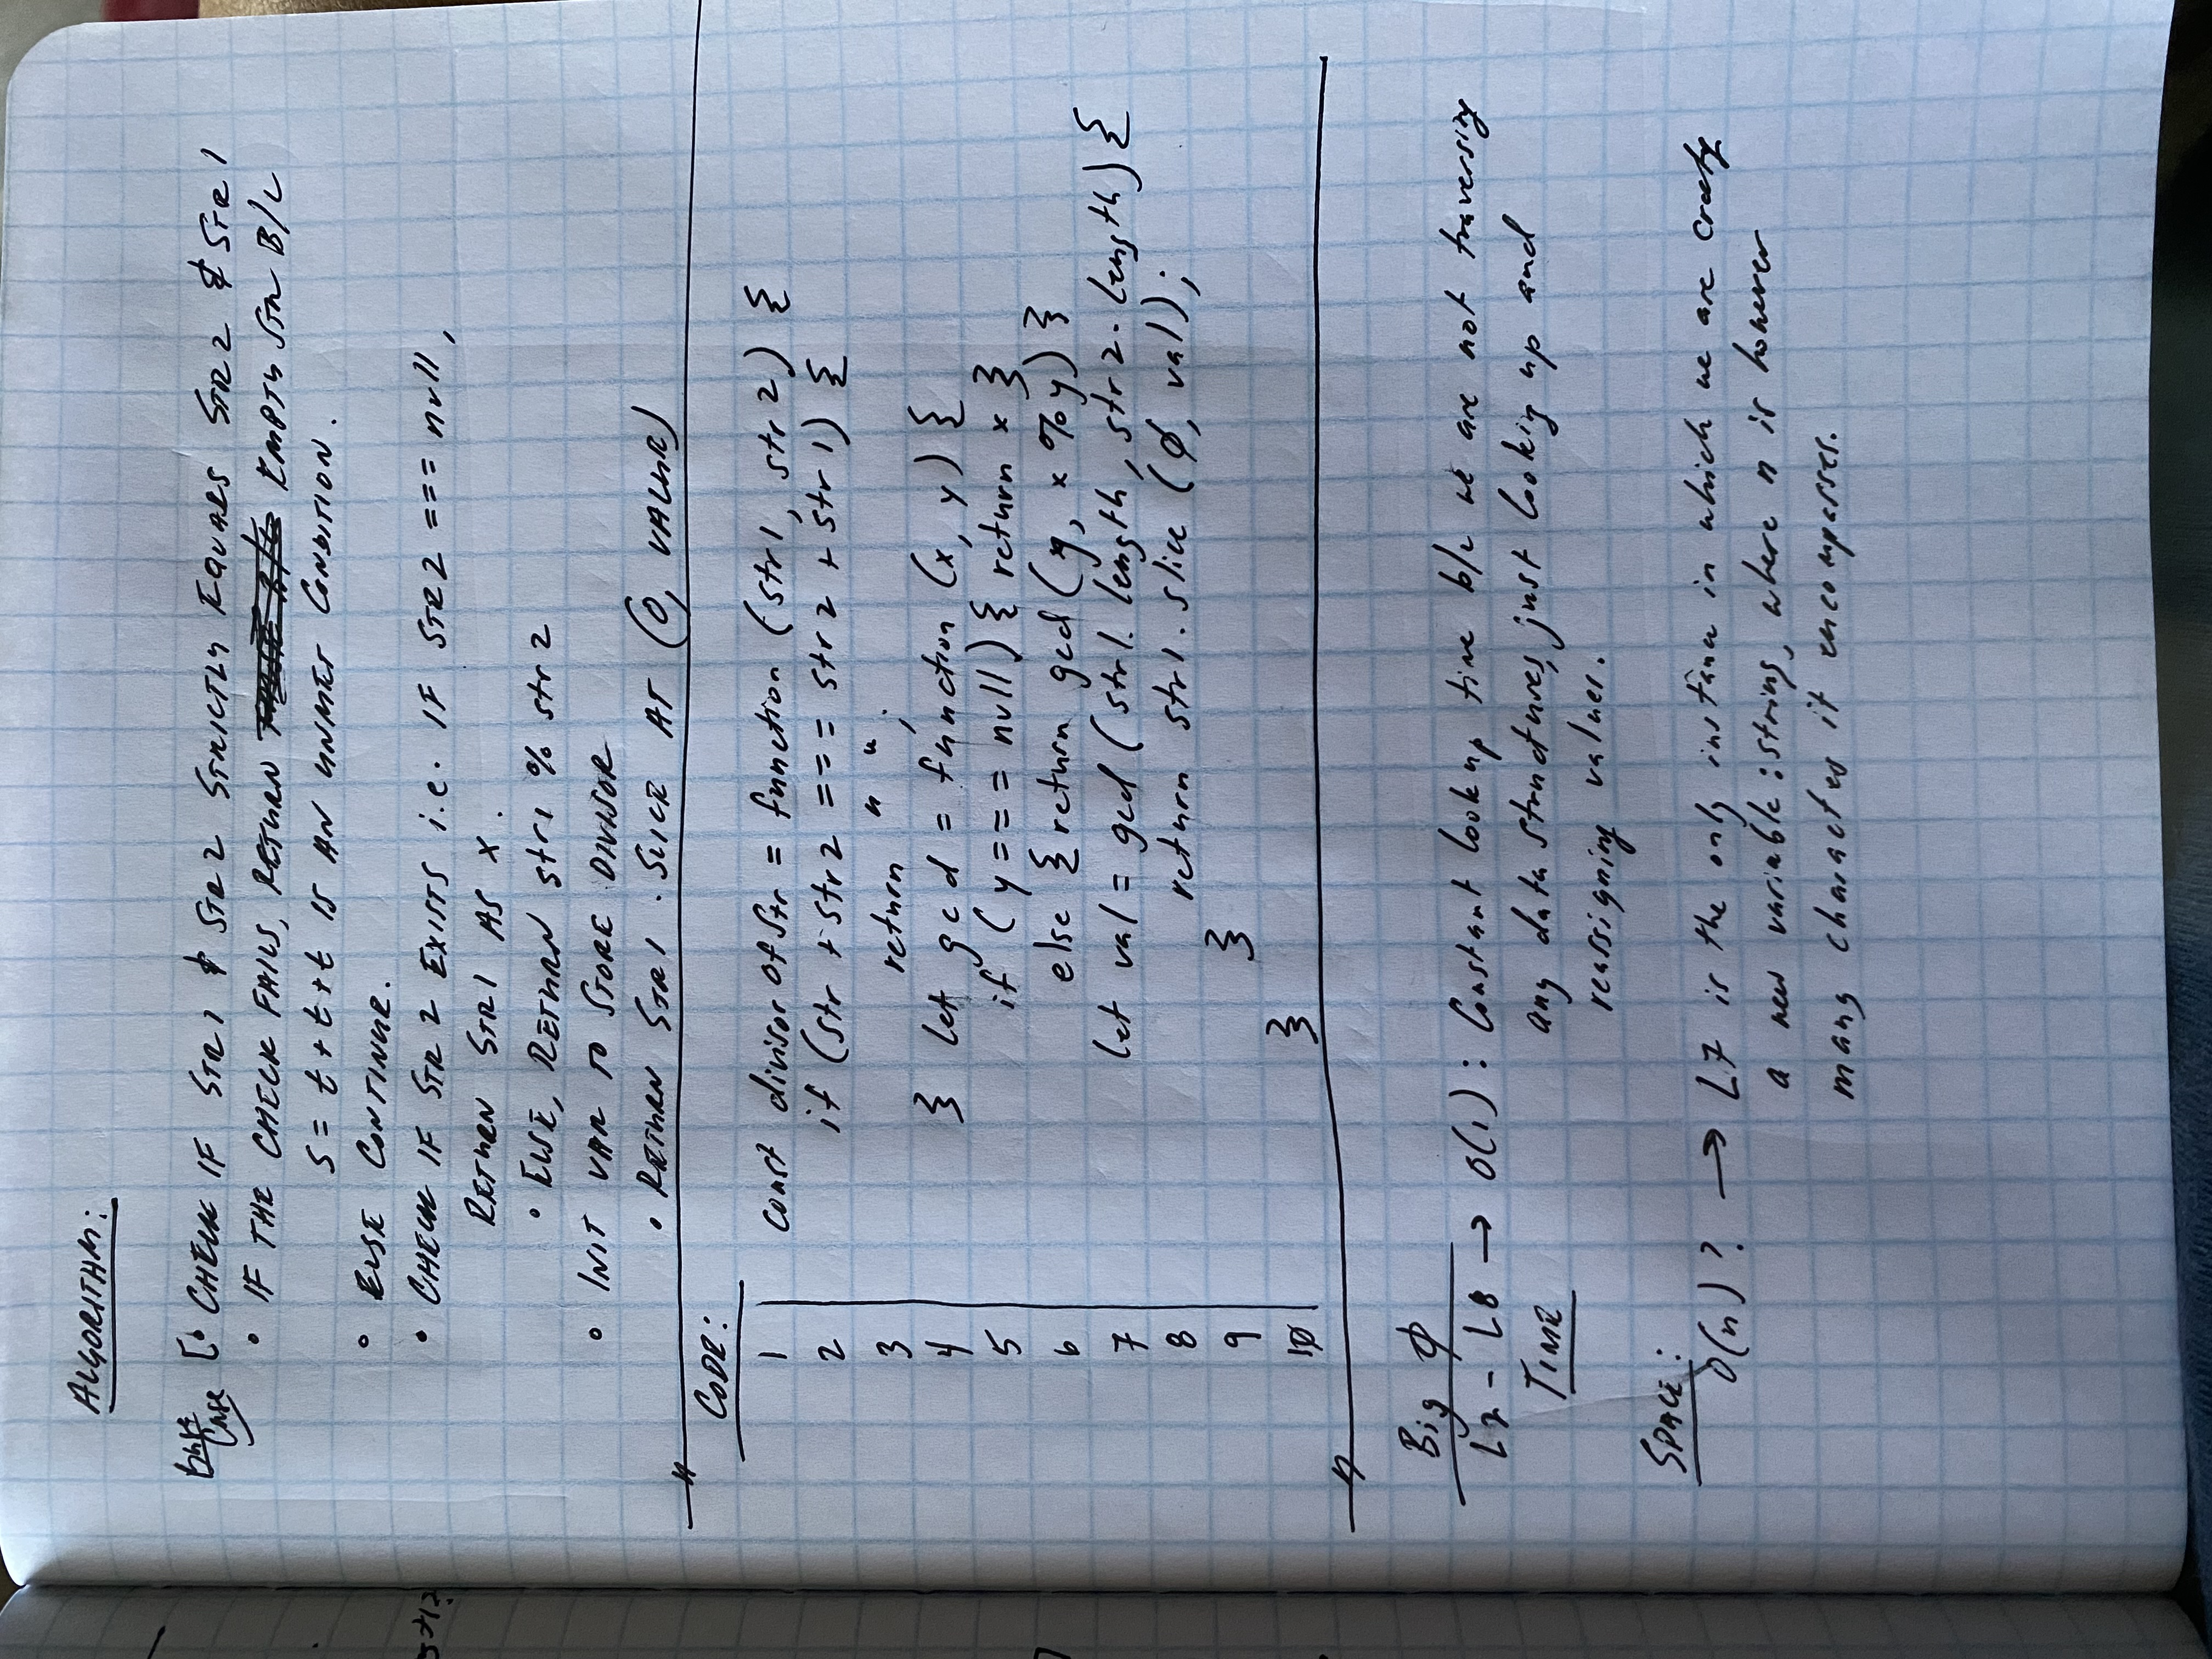 ALGORITHM:
Base
Case [• CHECK IF STR1 & STR2 STRICTLY EQUALS STR2 & STR1
• IF THE CHECK FAILS, RETURN EMPTY STR B/C
S = t + t + t IS AN UNMET CONDITION.
• ELSE CONTINUE.
• CHECK IF STR2 EXISTS i.e. IF STR2 === null,
RETURN STR1 AS X.
• ELSE, RETURN str1 % str2
• INIT VAR TO STORE DIVISOR
• RETURN STR1 . SLICE AT (0, VALUE)
CODE:
1 const divisorOfStr = function (str1, str2) {
2 if (str + str2 === str2 + str1) {
3 return " ";
4 } let gcd = function (x, y) {
5 if (y === null) { return x }
6 else { return gcd (y, x % y) }
7 let val = gcd (str1.length, str2.length) {
8 return str1.slice (0, val);
9 }
10 }
Big O
L2 - L8 → O(1) : Constant lookup time b/c we are not traversing
TIME any data structures, just looking up and
reassigning values.
SPACE:
O(n) ? → L7 is the only instance in which we are creating
a new variable : string, where n is however
many characters it encompasses.